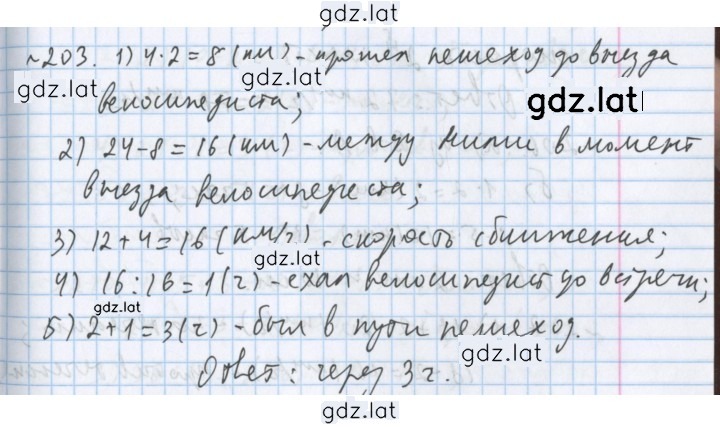 gdz.lat
№203. 1) 4·2=8 (км) - прошел пешеход до выезда
gdz.lat
gdz.lat
велосипедиста;
2) 24-8=16 (км) - между ними в момент
выезда велосипедиста;
3) 12+4=16 (км/ч) - скорость сближения;
gdz.lat
4) 16:16=1 (ч) - ехал велосипедист до встречи;
gdz.lat
5) 2+1=3 (ч) - был в пути пешеход.
gdz.lat
Ответ: через 3 ч.
gdz.lat